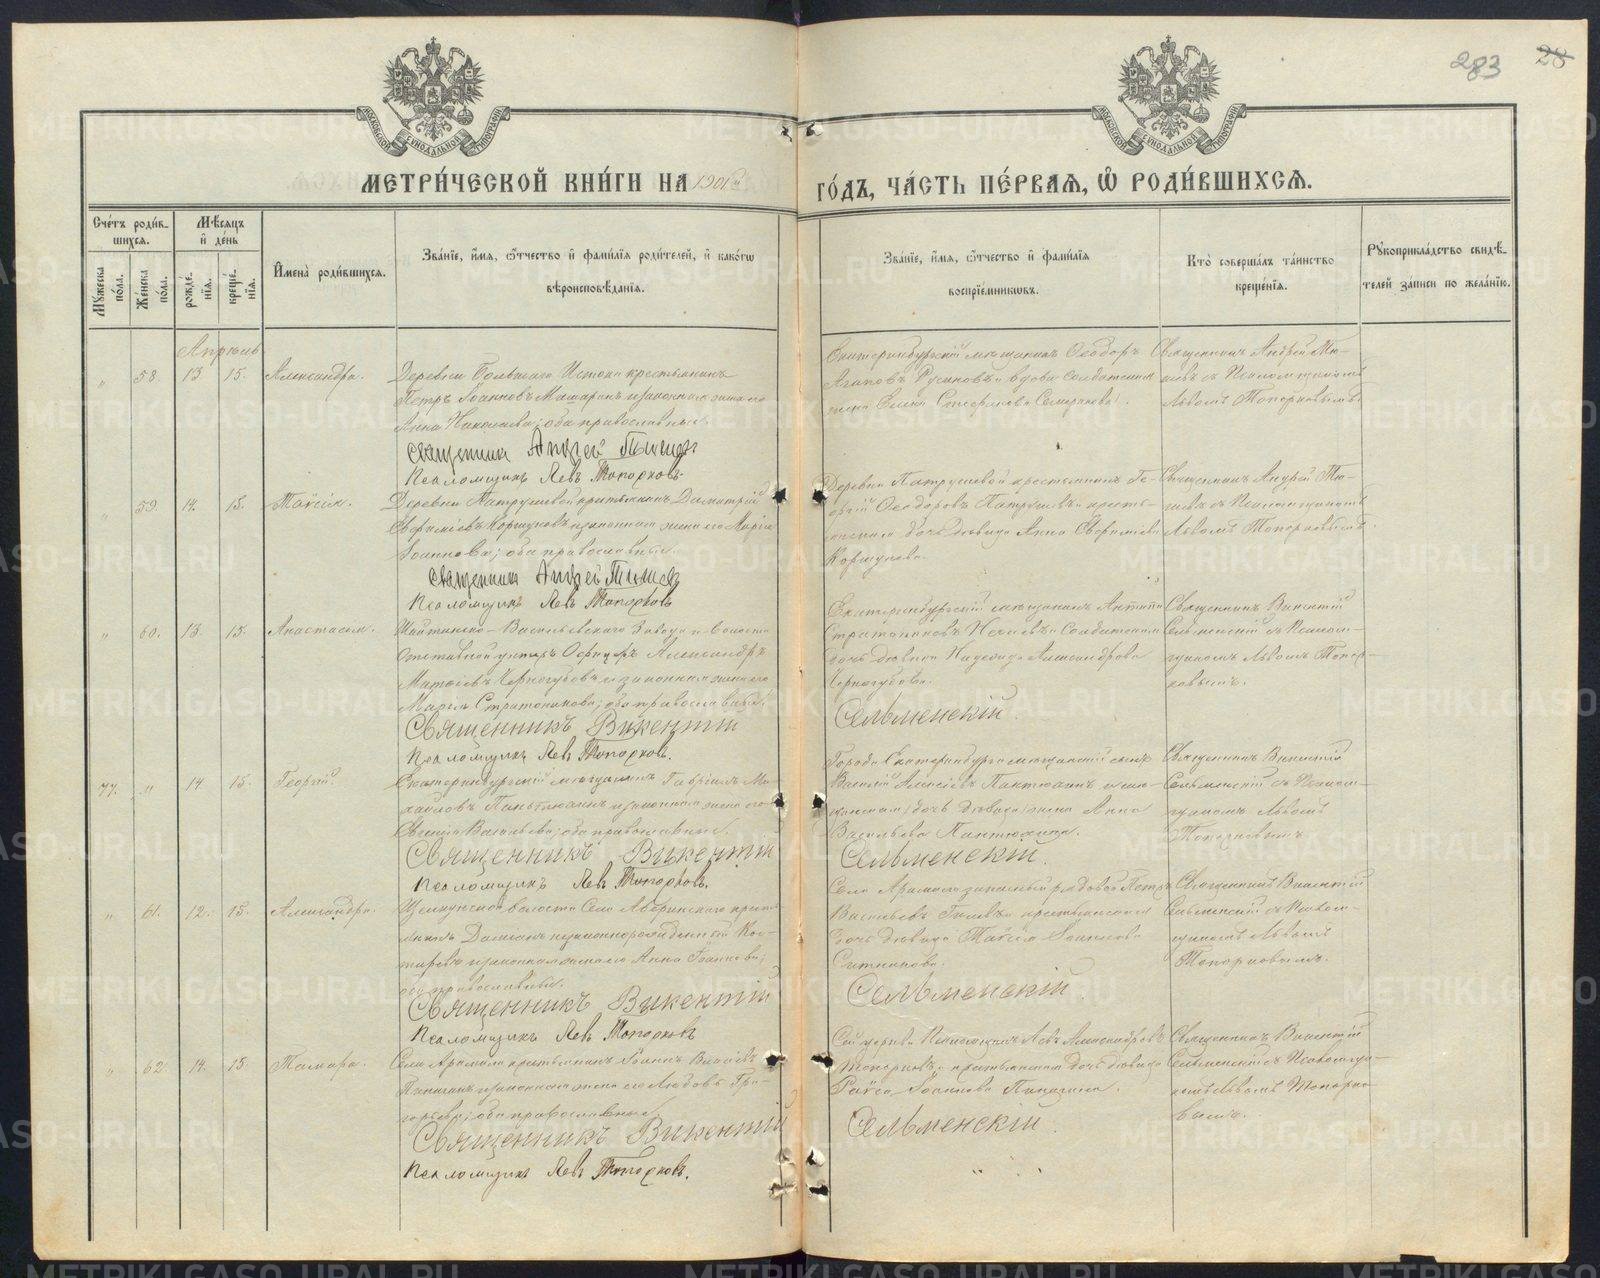 283 28
МОСКОВСКОЙ СѴНОДАЛЬНОЙ ТИПОГРАФІИ
МОСКОВСКОЙ СѴНОДАЛЬНОЙ ТИПОГРАФІИ
МЕТРИ́ЧЕСКОЙ КНИ́ГИ НА 1901й
ГО́ДЪ, ЧА́СТЬ ПЕ́РВАѦ, Ѡ҆ РОДИ́ВШИХСѦ.
Сче́тъ роди́в-
шихся.
Мѣ́сяцъ
и҆ де́нь
Мꙋ́жеска по́ла.
Же́нска по́ла.
рожде́-нїя.
креще́-нїя.
И҆мена̀ роди́вшихся.
Зва́нїе, и҆́мя, ѻ҆́тчество и҆ фами́лїя роди́телей, и҆ како́гѡ
вѣроисповѣ́данїя.
Зва́нїе, и҆́мя, ѻ҆́тчество и҆ фами́лїя
воспрїе́мникѡвъ.
Кто̀ соверша́лъ та́инство
креще́нїя.
Рꙋкоприкла́дство свидѣ́-
телей за́писи по жела́нїю.
Апрѣль
58. 13 15. Александра.
Деревни Большаго Истока крестьянинъ
Петръ Іоанновъ Машаринъ и законная жена его
Анна Николаева; оба православные.
Священникъ Андрей
Псаломщикъ Левъ Топорковъ.
Екатеринбургскій мѣщанинъ Ѳеодоръ
Агаповъ Русиновъ и вдова солдатская
жена Елена
Священникъ Андрей
съ Псаломщикомъ
Львомъ Топорковымъ.
59. 14. 15. Таисія.
Деревни Патрушевой крестьянинъ Димитрій
Евфиміевъ Коршуновъ и законная жена его Марія
Іоаннова; оба православные.
Священникъ Андрей
Псаломщикъ Левъ Топорковъ
Деревни Патрушевой крестьянинъ Ге-
оргій Ѳеодоровъ Патрушевъ и кресть-
янская дочь дѣвица Анна Евфиміева
Коршунова.
Священникъ Андрей
съ Псаломщикомъ
Львомъ Топорковымъ.
60. 13. 15. Анастасія.
Шайтанско-Васильевскаго Завода и волости
отставной унтеръ Офицеръ Александръ
Матѳіевъ Черногубовъ и законная жена его
Марія Стратоникова; оба православные.
Священникъ Викентій
Псаломщикъ Левъ Топорковъ.
Екатеринбургскій мѣщанинъ
Стратониковъ и Солдатская
дочь дѣвица Надежда Александрова
Черногубова.
Сельменскій.
Священникъ Викентій
Сельменскій съ Псалом-
щикомъ Львомъ Топор-
ковымъ.
77. " 14 15. Георгій.
Екатеринбургскій мѣщанинъ Гавріилъ Ми-
хайловъ и законная жена его
Васильева; оба православные.
Священникъ Викентій
Псаломщикъ Левъ Топорковъ.
Города Екатеринбурга мѣщанскій сынъ
Василій Алексѣевъ Пантюхинъ и мѣ-
щанская дочь дѣвица Анна
Васильева Пантюхина.
Сельменскій.
Священникъ Викентій
Сельменскій съ Псалом-
щикомъ Львомъ
Топорковымъ
" 61. 12. 15. Александра.
Щелкунской волости Села Аверинскаго крест-
янинъ Даміанъ незаконнорожденный Кос-
таревъ и законная жена его Анна Іоаннова;
оба православные.
Священникъ Викентій
Псаломщикъ Левъ Топорковъ
Села Арамили запасный рядовой Петръ
Васильевъ и крестьянская
дочь дѣвица Таисія Іоаннова
Ситникова.
Сельменскій.
Священникъ Викентій
Сельменскій съ Псалом-
щикомъ Львомъ
Топорковымъ.
62. 14. 15. Тамара.
Села Арамили крестьянинъ Іоаннъ
и законная жена его Любовь Гри-
горьева; оба православные.
Священникъ Викентій
Псаломщикъ Левъ Топорковъ.
Сей церкви Псаломщикъ Левъ Александровъ
Топорковъ и крестьянская дочь дѣвица
Раиса Іоаннова
Сельменскій.
Священникъ Викентій
Сельменскій съ Псаломщи-
комъ Львомъ Топорко-
вымъ.
METRIKI.GASO-URAL.RU